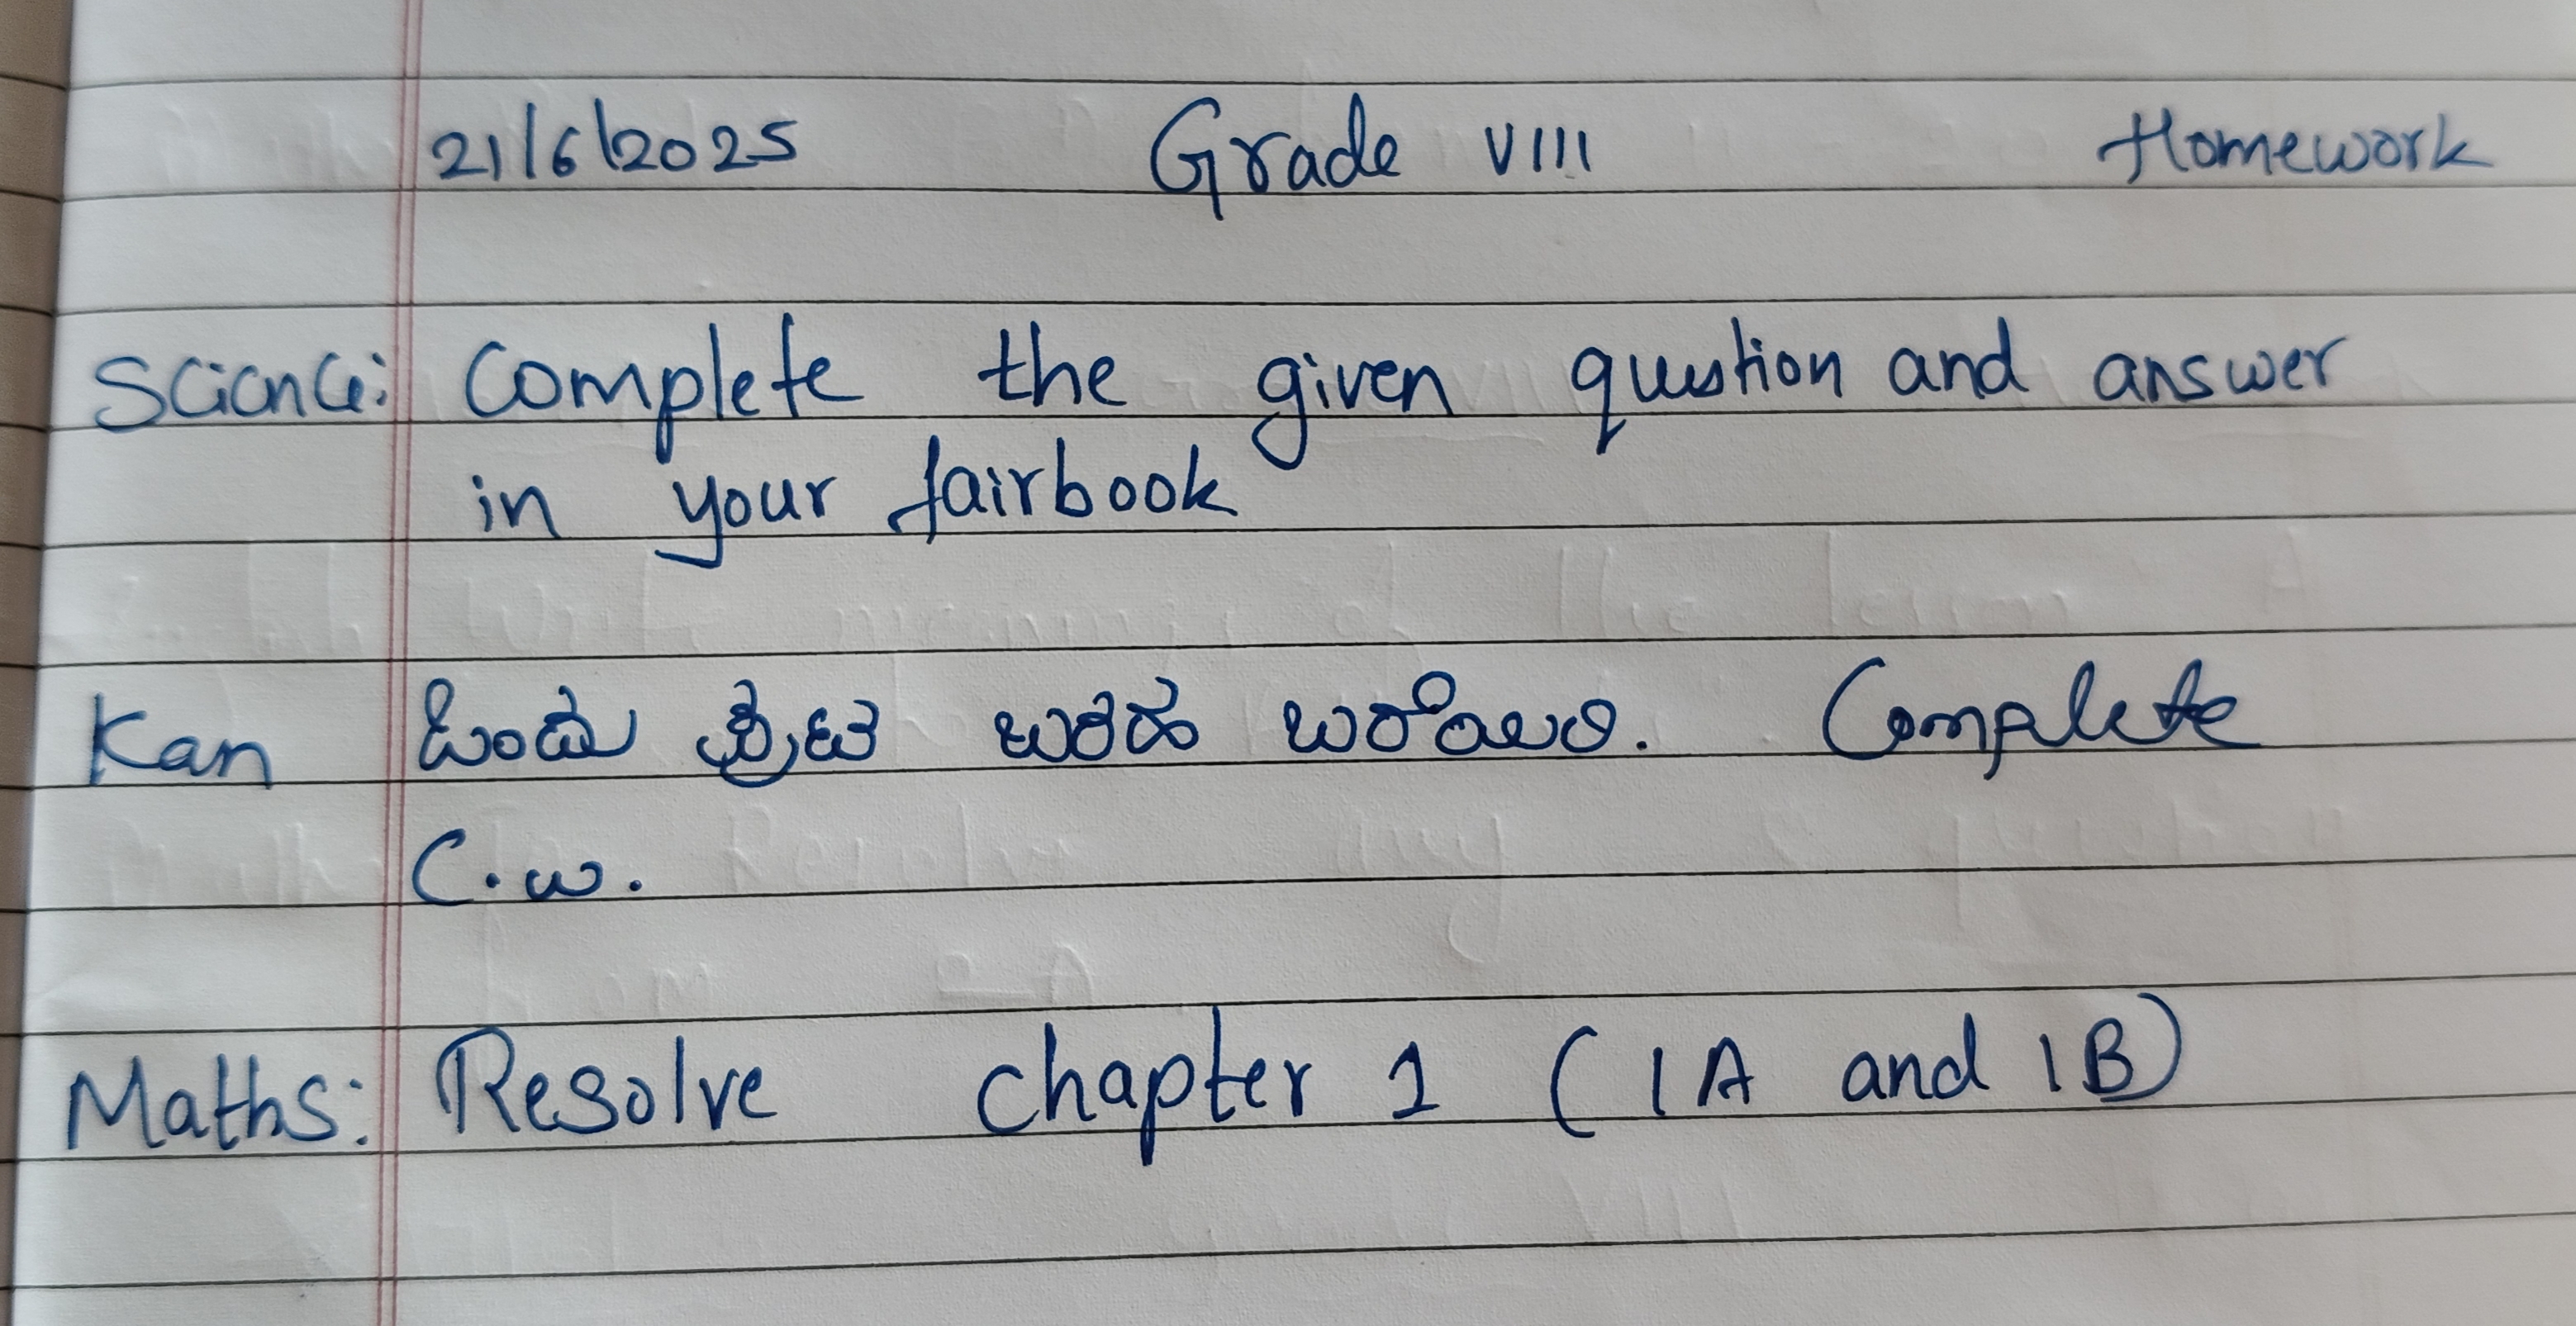 21/6/2025 Grade VIII Homework
Science: Complete the given question and answer
in your fairbook
Kan ಒಂದು ಪುಟ ಬರಹ ಬರೆಯಿರಿ. Complete
C.W.
Maths: Resolve chapter 1 (1A and 1B)